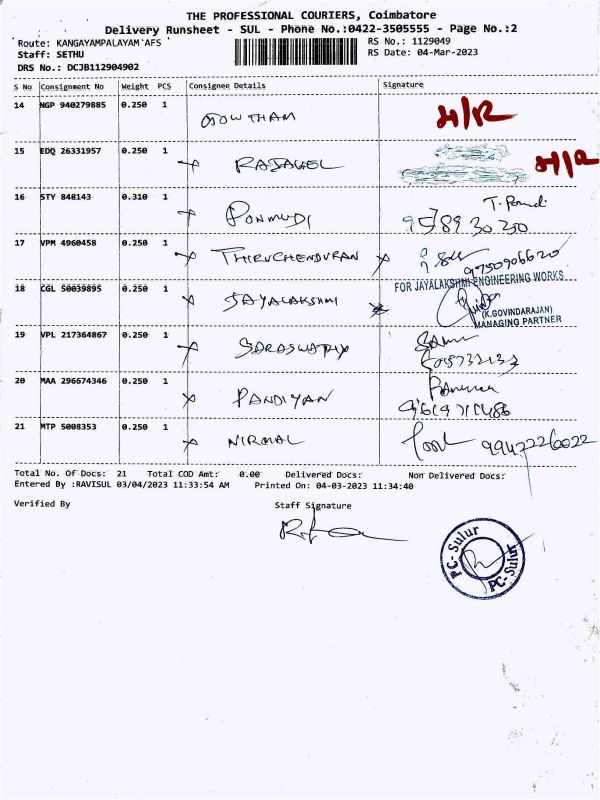 THE PROFESSIONAL COURIERS, Coimbatore
Delivery Runsheet - SUL - Phone No.:0422-3505555 - Page No.:2
Route: KANGAYAMPALAYAM'AFS ' RS No.: 1129049
Staff: SETHU RS Date: 04-Mar-2023
DRS No.: DCJB112904902
S No Consignment No Weight PCS Consignee Details Signature
14 NGP 940279885 0.250 1 GOWTHAM
15 EDQ 26331957 0.250 1 RAJAGEL
16 STY 848143 0.310 1 PONMUDI
9578930230
17 VPM 4960458 0.250 1 THIRUCHENDURAN
9750906620
18 CGL 50039895 0.250 1 JAYALAKSHMI
FOR JAYALAKSHMI ENGINEERING WORKS
(K.GOVINDARAJAN)
MANAGING PARTNER
19 VPL 217364867 0.250 1 SARASWATHY
20 MAA 296674346 0.250 1 PANDIYAN
21 MTP 5008353 0.250 1 NIRMAL
Total No. Of Docs: 21 Total COD Amt: 0.00 Delivered Docs: Non Delivered Docs:
Entered By :RAVISUL 03/04/2023 11:33:54 AM Printed On: 04-03-2023 11:34:40
Verified By Staff Signature
PC-Sulur
PC-Sulur